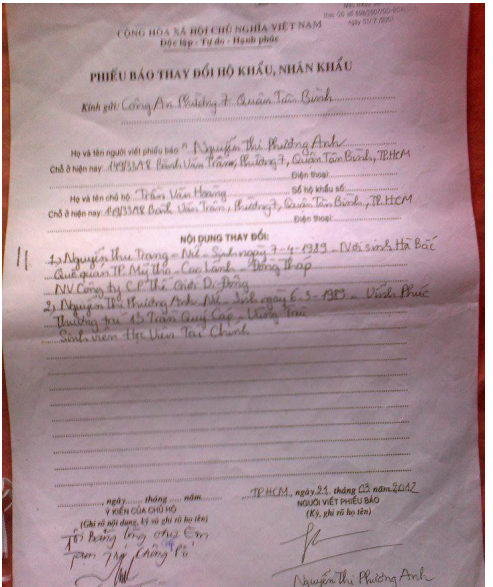 CỘNG HÒA XÃ HỘI CHỦ NGHĨA VIỆT NAM
Độc lập - Tự do - Hạnh phúc
PHIẾU BÁO THAY ĐỔI HỘ KHẨU, NHÂN KHẨU
Kính gửi: Công An Phường 7 Quận Tân Bình
Họ và tên người viết phiếu báo Nguyễn Thị Phương Anh
Chỗ ở hiện nay: Bành Văn Trân, Phường 7, Quận Tân Bình, TP.HCM
Điện thoại:
Họ và tên chủ hộ Trần Văn Hoàng Số hộ khẩu số:
Chỗ ở hiện nay: Bành Văn Trân, Phường 7, Quận Tân Bình, TP.HCM
Điện thoại:
NỘI DUNG THAY ĐỔI:
1) Nguyễn Thu Trang - Nữ - Sinh ngày 7-4-1989 - Nơi sinh Hà Bắc
Quê quán TP. Mỹ Tho - Cao Lãnh - Đồng Tháp
NV Công ty C.P Thế Giới Di Động
2) Nguyễn Thị Phương Anh Nữ - Sinh ngày 6-3-1989 - Vĩnh Phúc
Thường trú 15 Trần Quý Cáp - Vũng Tàu
Sinh viên Học Viện Tài Chính
TP.HCM, ngày 21 tháng 03 năm 2012
........, ngày..... tháng ..... năm.....
NGƯỜI VIẾT PHIẾU BÁO
Ý KIẾN CỦA CHỦ HỘ
(Ký, ghi rõ họ tên)
(Ghi rõ nội dung, ký và ghi rõ họ tên)
Tôi bằng lòng cho Em
Nguyễn Thị Phương Anh